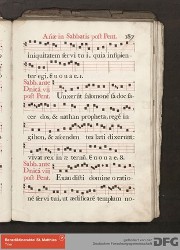 Aña in Sabbatis post Pent. 187
iniquitatem servi tui, quia insipien-
ter egi. Euouae.
Sabb. ante
Dnicā vii
post Pent. Unxerūt Salomonē sadoc sa-
cerdos, & nathan propheta in
gihon, & ascendentes lati dixerunt:
vivat rex in æternū. Euouae.
Sabb. ante
Dnicā viij
post Pent. Exaudisti domine oratio-
nē servi tui, ut ædificarē templum no-
Benediktinerstift St. Mattheis
DFG